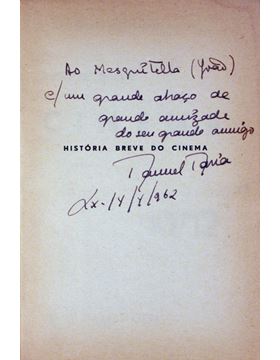 Ao Mesquitella (João)
c/ um grande abraço de
grande amizade
do seu grande amigo
HISTÓRIA BREVE DO CINEMA
Manuel Faria
Lx. /V/1962